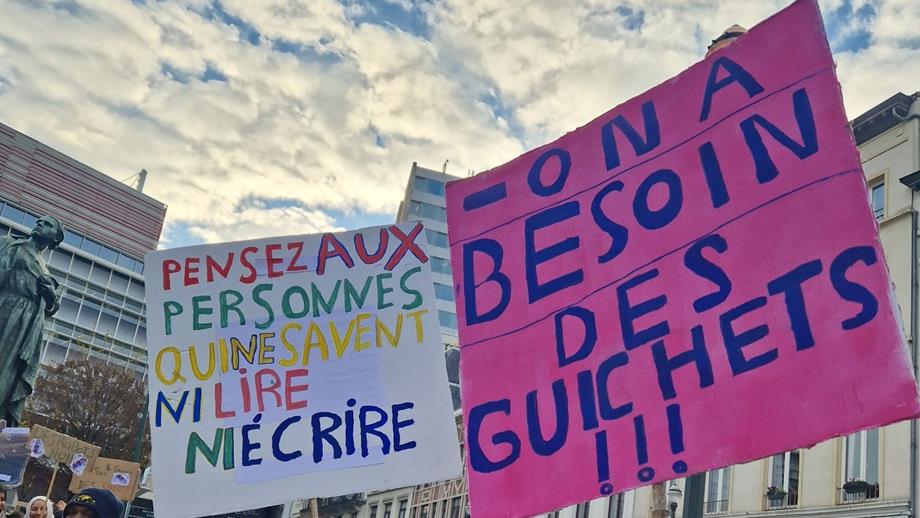 PENSEZ AUX
PERSONNES
QUI NE SAVENT
NI LIRE
NI ÉCRIRE
- ON A
BESOIN
DES
GUICHETS
!!!